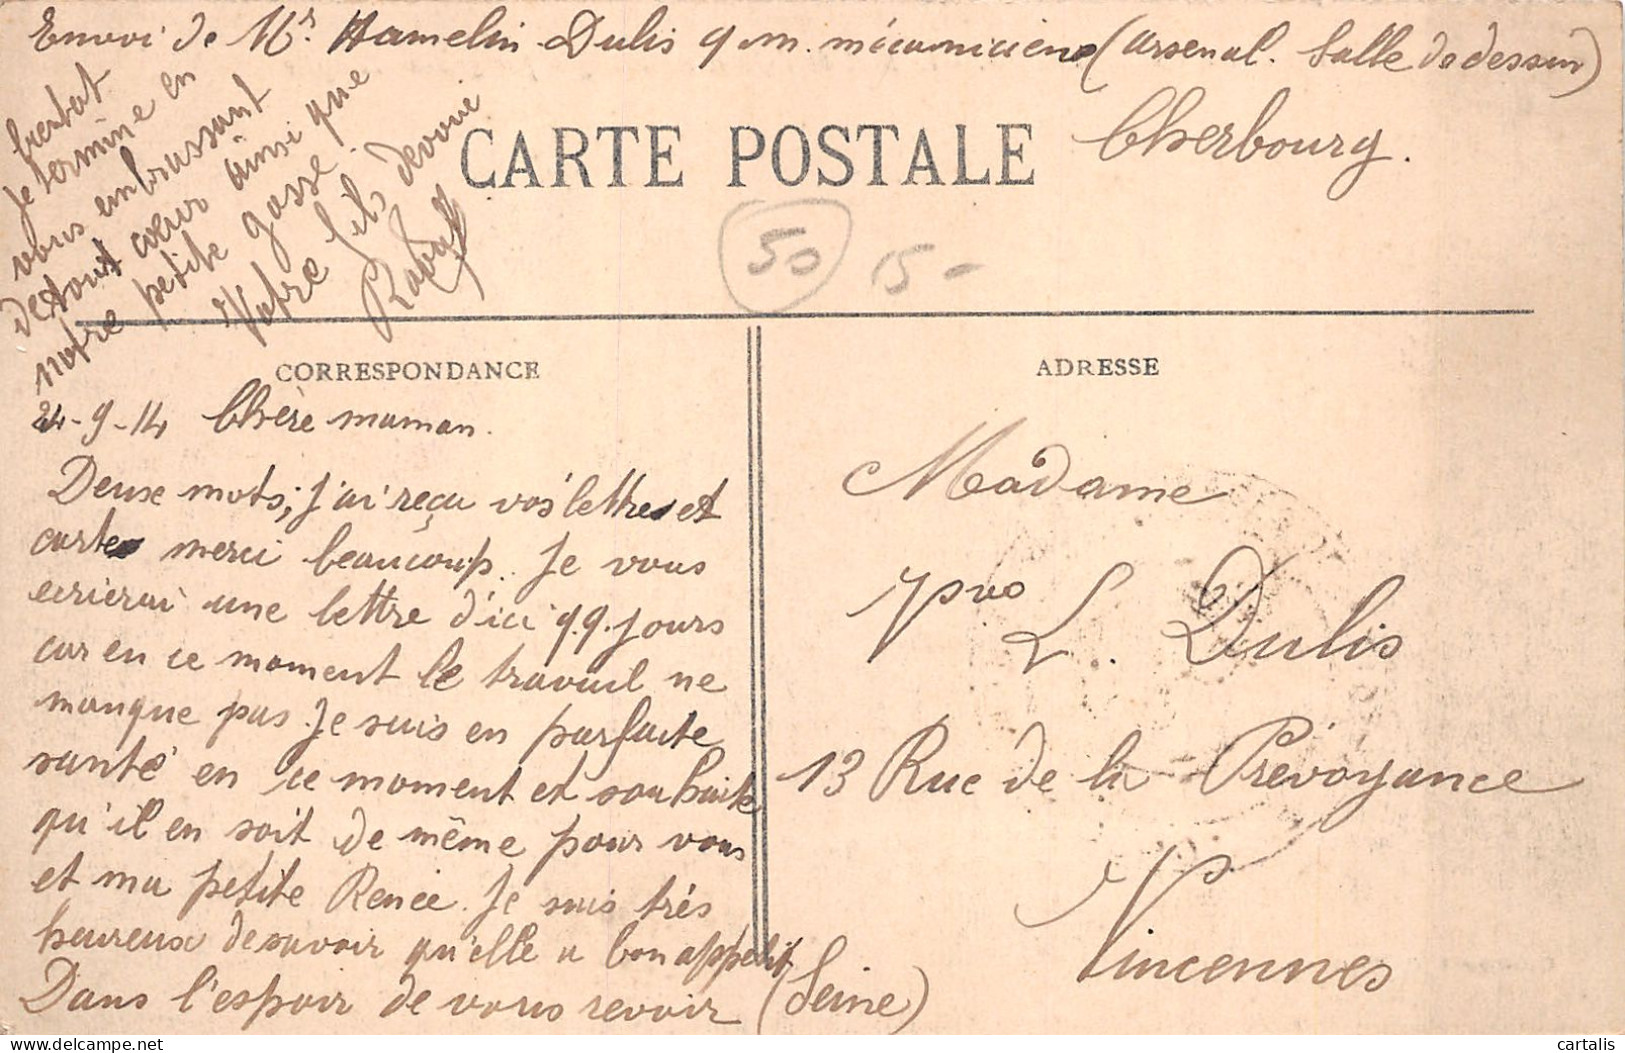 Envoi de Mr. Hamelin-Dulis q. m. mécanicien (Arsenal. Salle de dessin)
Cherbourg.
CARTE POSTALE
50
15-
CORRESPONDANCE
ADRESSE
24-9-14 Chère maman.
Deux mots; j'ai reçu vos lettres et
cartes merci beaucoup. Je vous
ecrierai une lettre d'ici q.q. jours
car en ce moment le travail ne
manque pas. Je suis en parfaite
santé en ce moment et souhaite
qu'il en soit de même pour vous
et ma petite Renée. Je suis très
heureux de savoir qu'elle a bon appetit
Dans l'espoir de vous revoir
bientot
je termine en
vous embrassant
de tout cœur ainsi que
notre petite gosse.
Votre fils devoué
Madame
Vve L. Dulis
13 Rue de la Prévoyance
Vincennes
(Seine)
cartalis